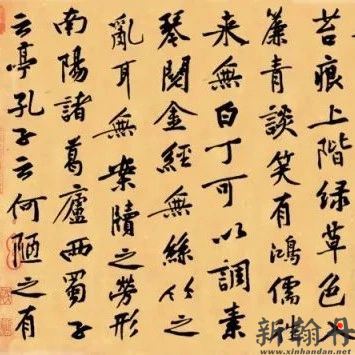 苔痕上階緑草色入
簾青談笑有鴻儒往
来無白丁可以調素
琴閱金經無絲竹之
亂耳無案牘之勞形
南陽諸葛廬西蜀子
云亭孔子云何陋之有
新翰丹
www.xinhandan.net